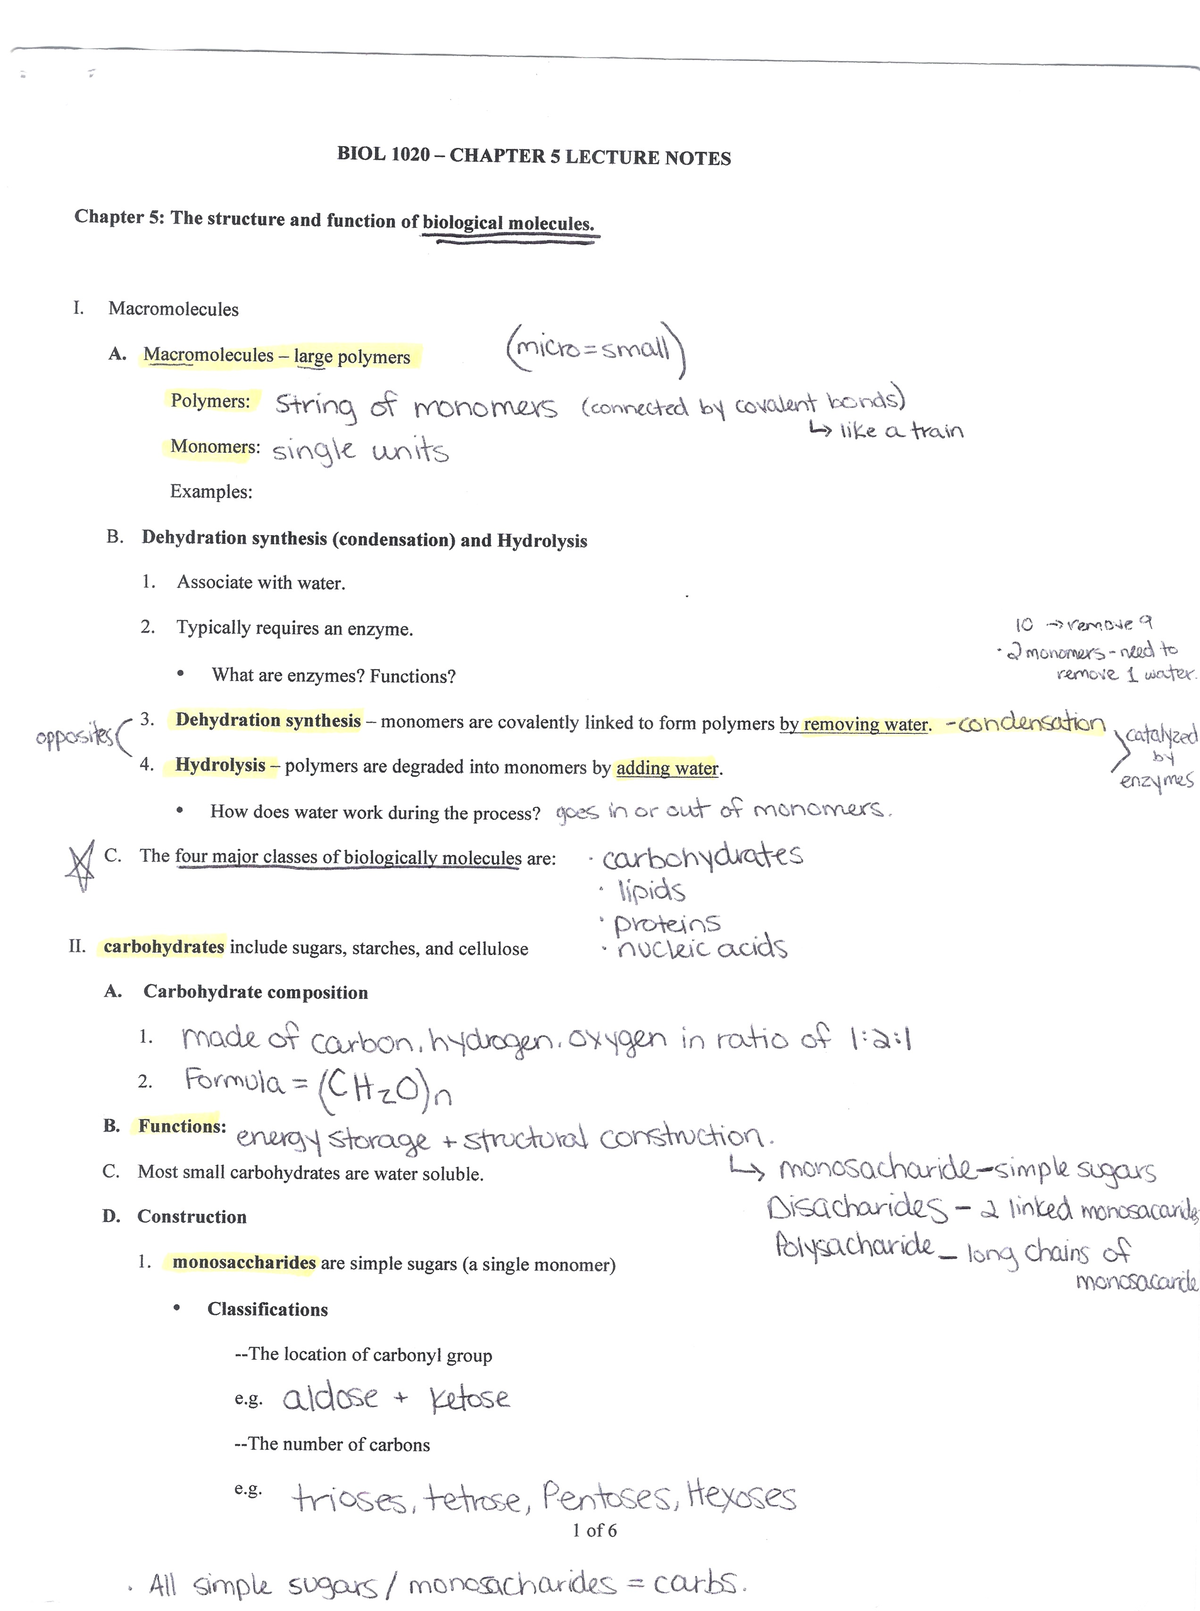 BIOL 1020 – CHAPTER 5 LECTURE NOTES
Chapter 5: The structure and function of biological molecules.
I. Macromolecules
(micro=small)
A. Macromolecules – large polymers
Polymers: String of monomers (connected by covalent bonds)
↳ like a train
Monomers: single units
Examples:
B. Dehydration synthesis (condensation) and Hydrolysis
1. Associate with water.
2. Typically requires an enzyme.
10 → remove 9
· 2 monomers - need to
remove 1 water.
• What are enzymes? Functions?
opposites
3. Dehydration synthesis – monomers are covalently linked to form polymers by removing water. - condensation
4. Hydrolysis – polymers are degraded into monomers by adding water.
catalyzed
by
enzymes
• How does water work during the process? goes in or out of monomers.
C. The four major classes of biologically molecules are: · carbohydrates
· lipids
· proteins
· nucleic acids
II. carbohydrates include sugars, starches, and cellulose
A. Carbohydrate composition
1. made of carbon, hydrogen, oxygen in ratio of 1:2:1
2. Formula = (CH2O)n
B. Functions: energy storage + structural construction.
↳ monosacharide - simple sugars
Disacharides - 2 linked monosacaride
Polysacharide - long chains of
monosacaride
C. Most small carbohydrates are water soluble.
D. Construction
1. monosaccharides are simple sugars (a single monomer)
• Classifications
--The location of carbonyl group
e.g. aldose + ketose
--The number of carbons
e.g. trioses, tetrose, Pentoses, Hexoses
1 of 6
· All simple sugars / monosacharides = carbs.